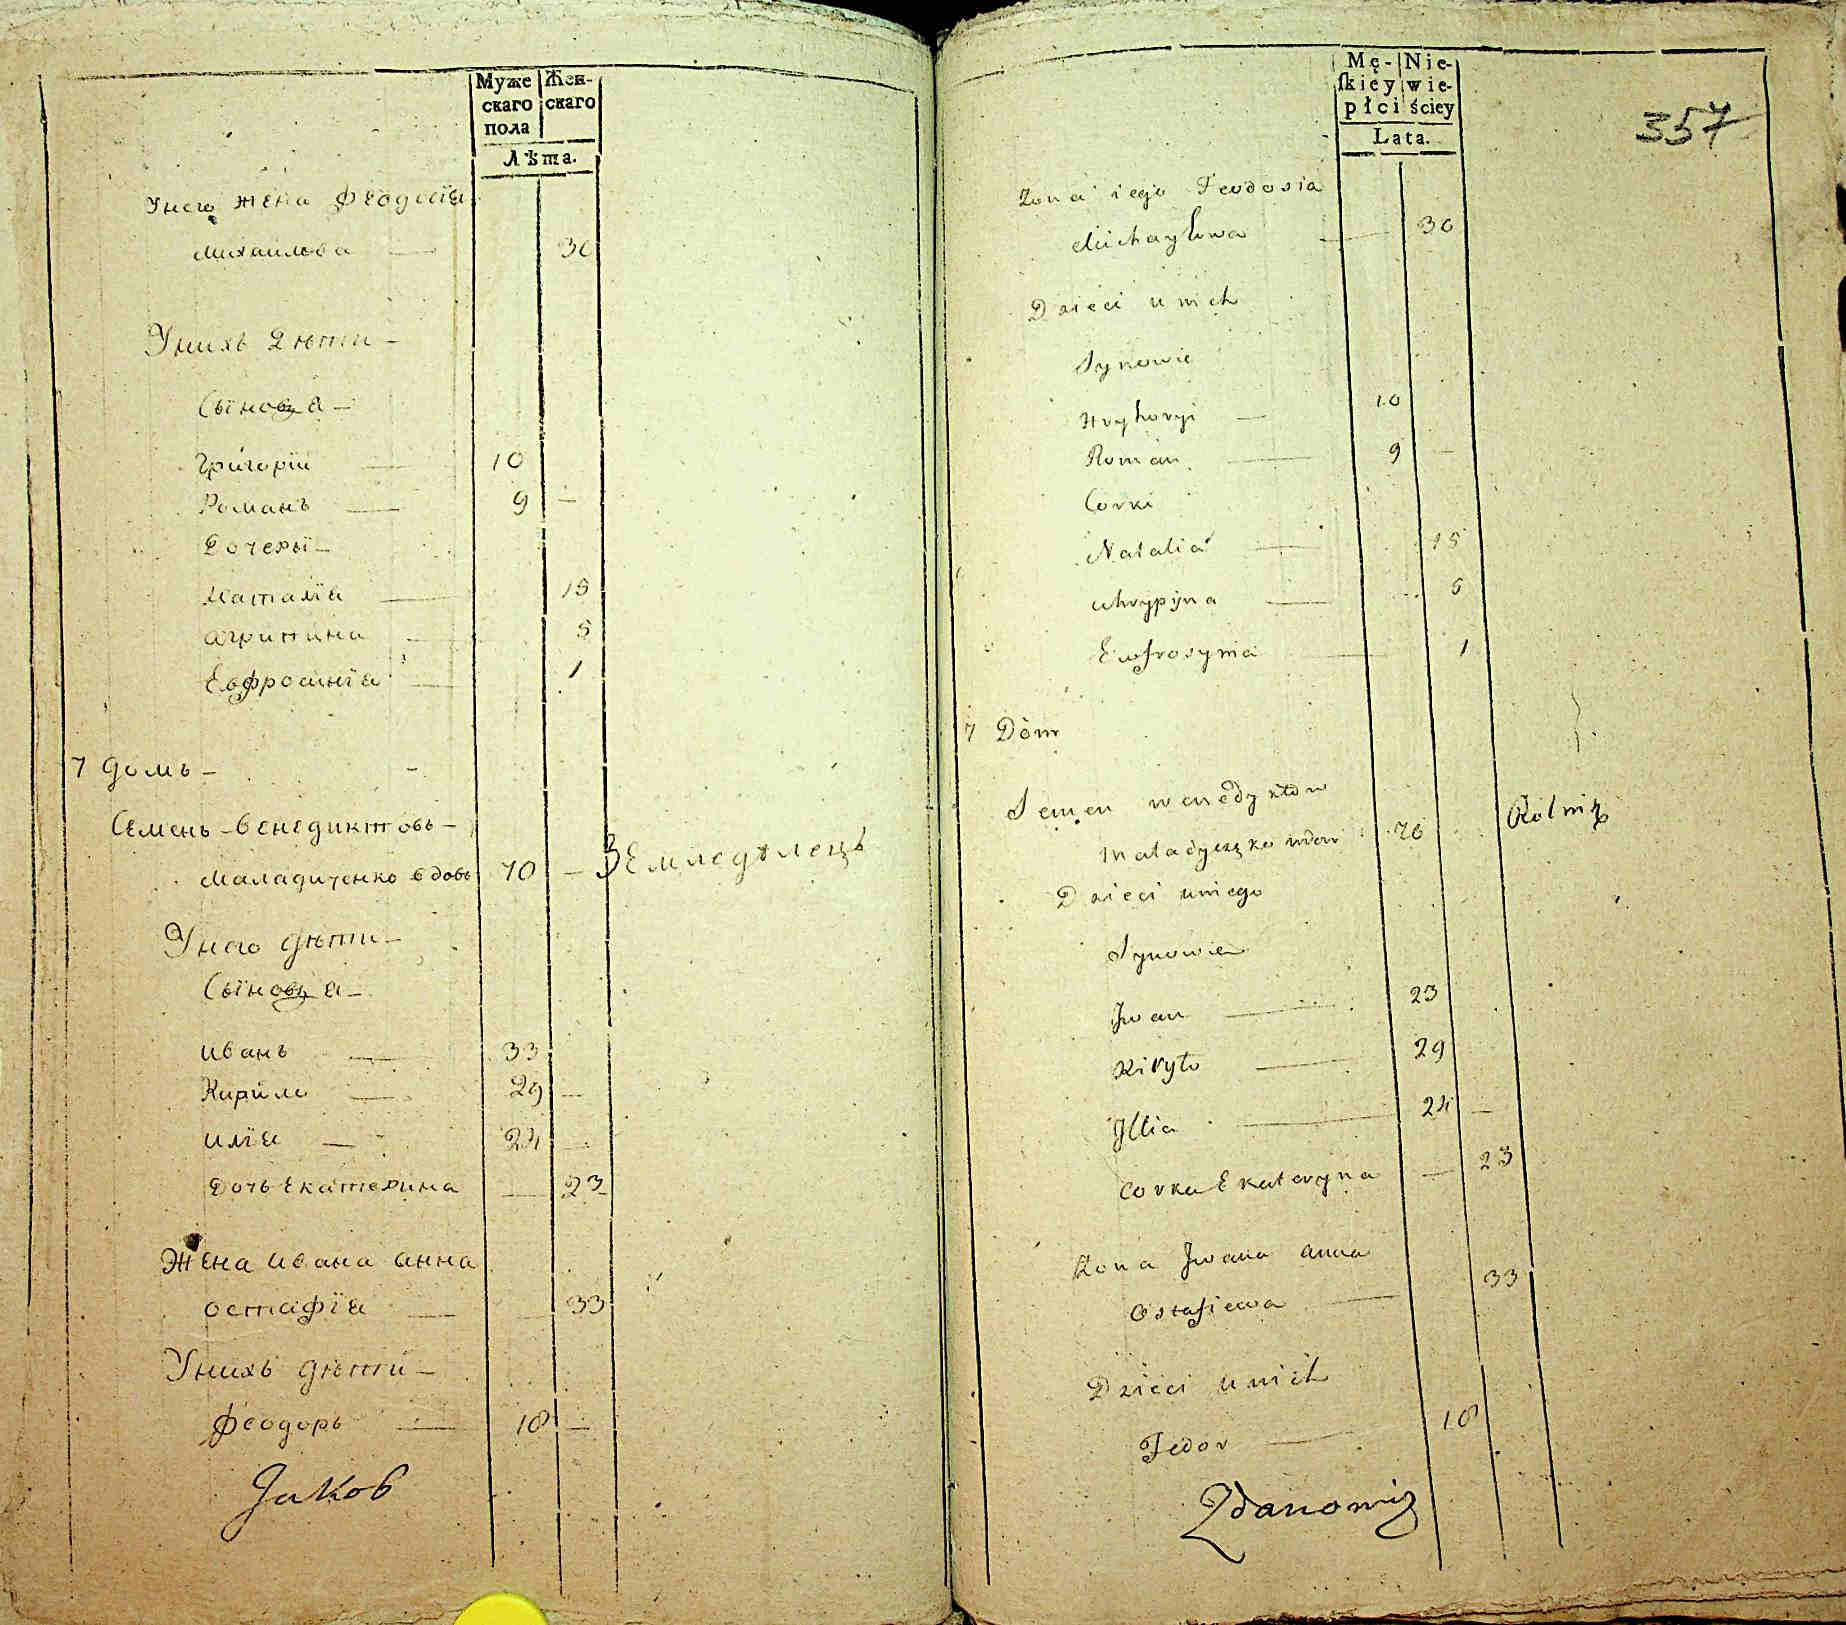 Муже
скаго
пола
Жен-
скаго
Лѣта.
Унего жена Феодосїя
Михайлова — 30
Унихъ дѣти —
Сыновя —
Григорїи — 10
Романъ — 9 —
Дочеры —
Наталїя — 15
Агрипина — 5
Евфросинїя — 1
7 Домъ —
Семенъ — Венедиктовъ —
Маладиченко вдовъ 70 — Земледѣлецъ
Унего дѣти —
Сыновя —
Иванъ — 33
Кирило — 29 —
Илїя — 24 —
Дочь Екатерина — 23
Жена Ивана Анна
Остафїя — 33
Унихъ дѣти —
Феодоръ — 10 —
Jakob
Mę-
skiey
płci
Nie-
wie-
ściey
Lata.
357
Zona iego Teodosia
Michayłowa — 30
Dzieci u nich
Synowie
Hryhoryi — 10
Roman — 9 —
Corki
Natalia — 15
Ahrypijna — 5
Ewfrosynia — 1
7 Dòm
Semen Wenedyktow
Maladyczko wdow 70 Rolnik
Dzieci uniego
Synowie
Jwan — 23
Kiryło — 29
Jllia — 24 —
Corka Ekateryna — 23
Zona Jwana Anna
Ostafiewa — 33
Dzieci u nich
Fedor — 10
Zdanowicz